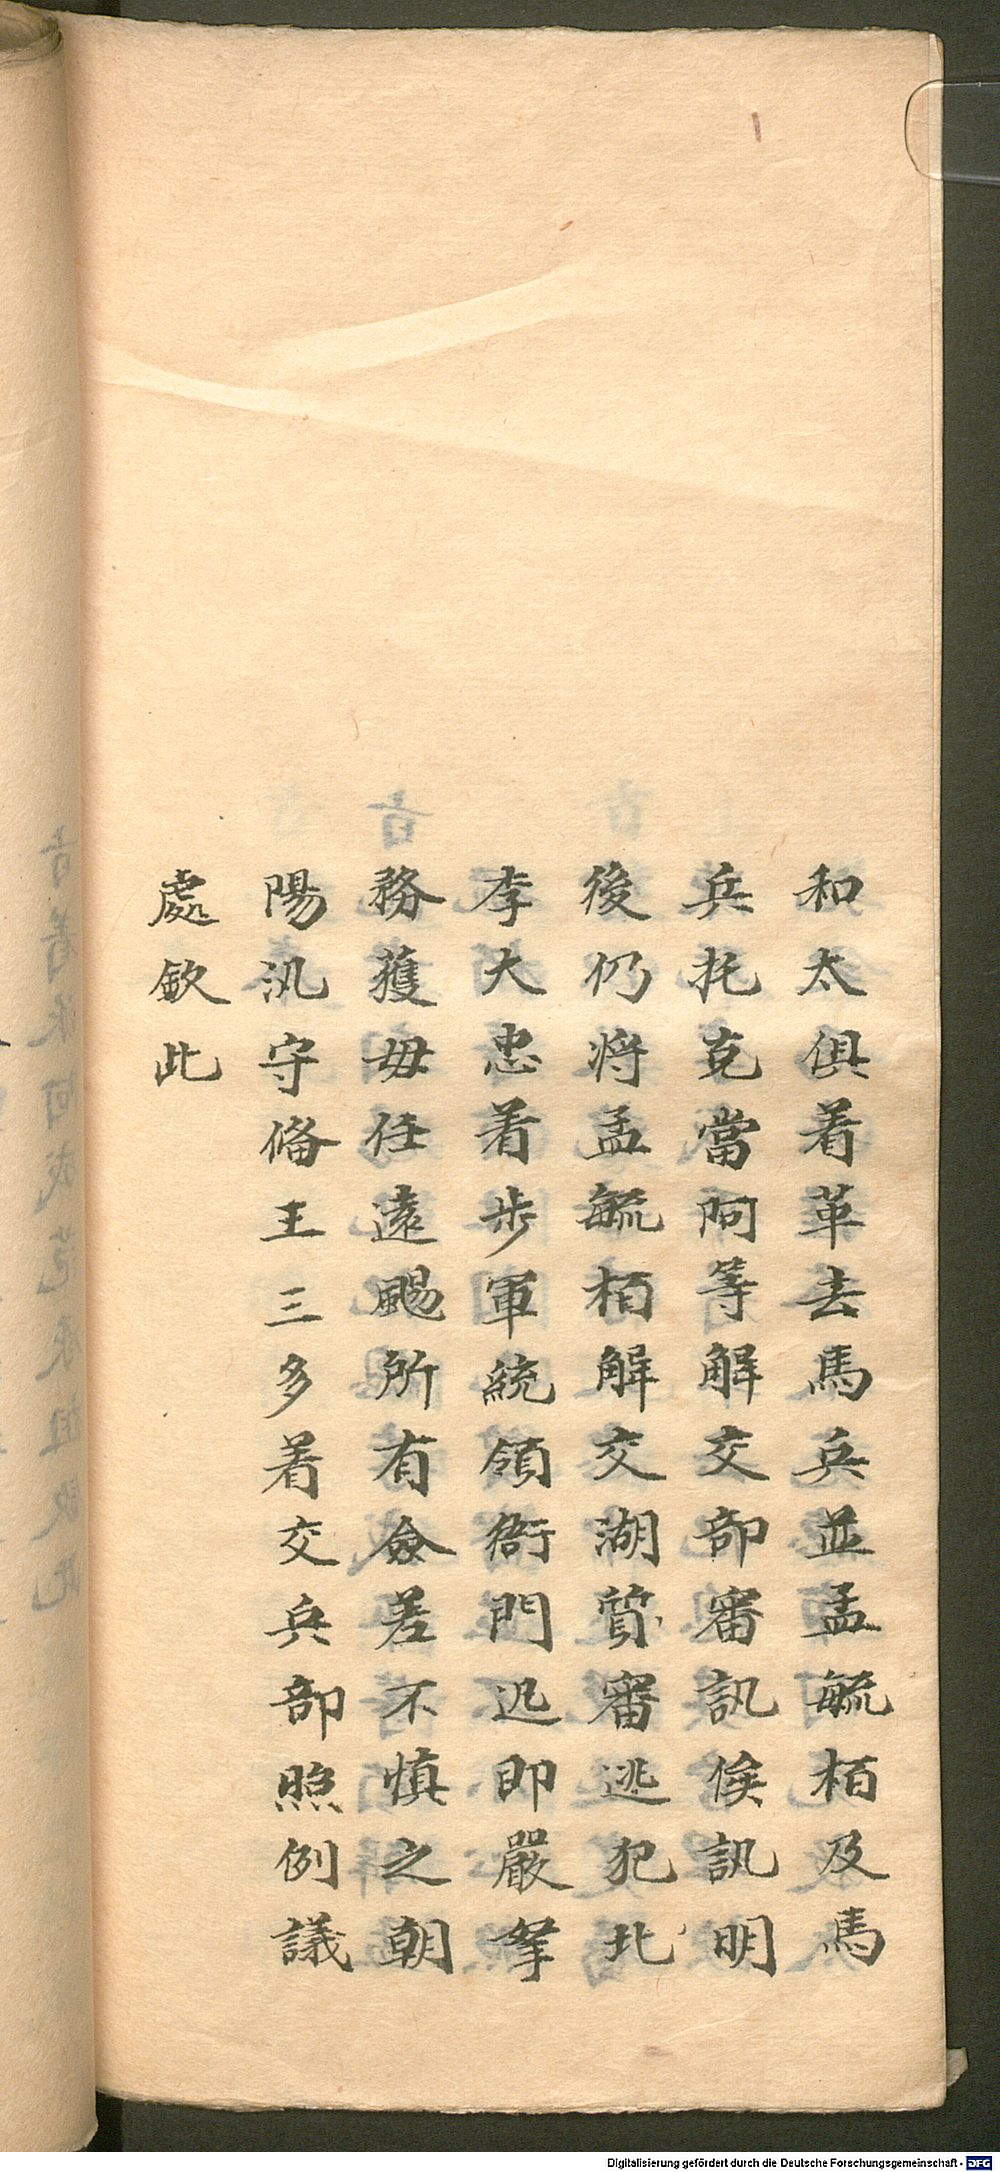 和太俱着革去馬兵並孟毓栢及馬
兵托克當阿等解交部審訊俟訊明
後仍将孟毓栢解交湖質審逃犯北
李大忠着步軍統領衙門迅即嚴拏
務獲毋任遠颺所有僉差不慎之朝
陽汛守俻王三多着交兵部照例議
處欽此
Digitalisierung gefördert durch die Deutsche Forschungsgemeinschaft - DFG